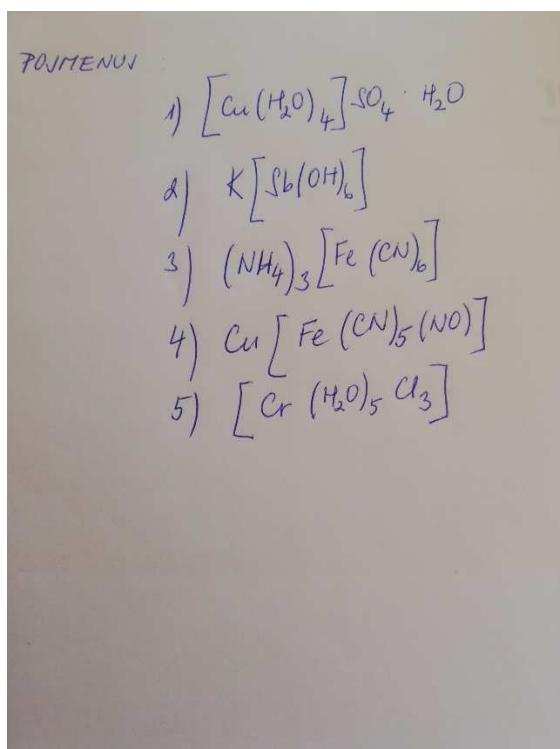 POJMENUJ
1) [Cu(H₂O)₄]SO₄ · H₂O
2) K[Sb(OH)₆]
3) (NH₄)₃[Fe(CN)₆]
4) Cu[Fe(CN)₅(NO)]
5) [Cr(H₂O)₅Cl₃]